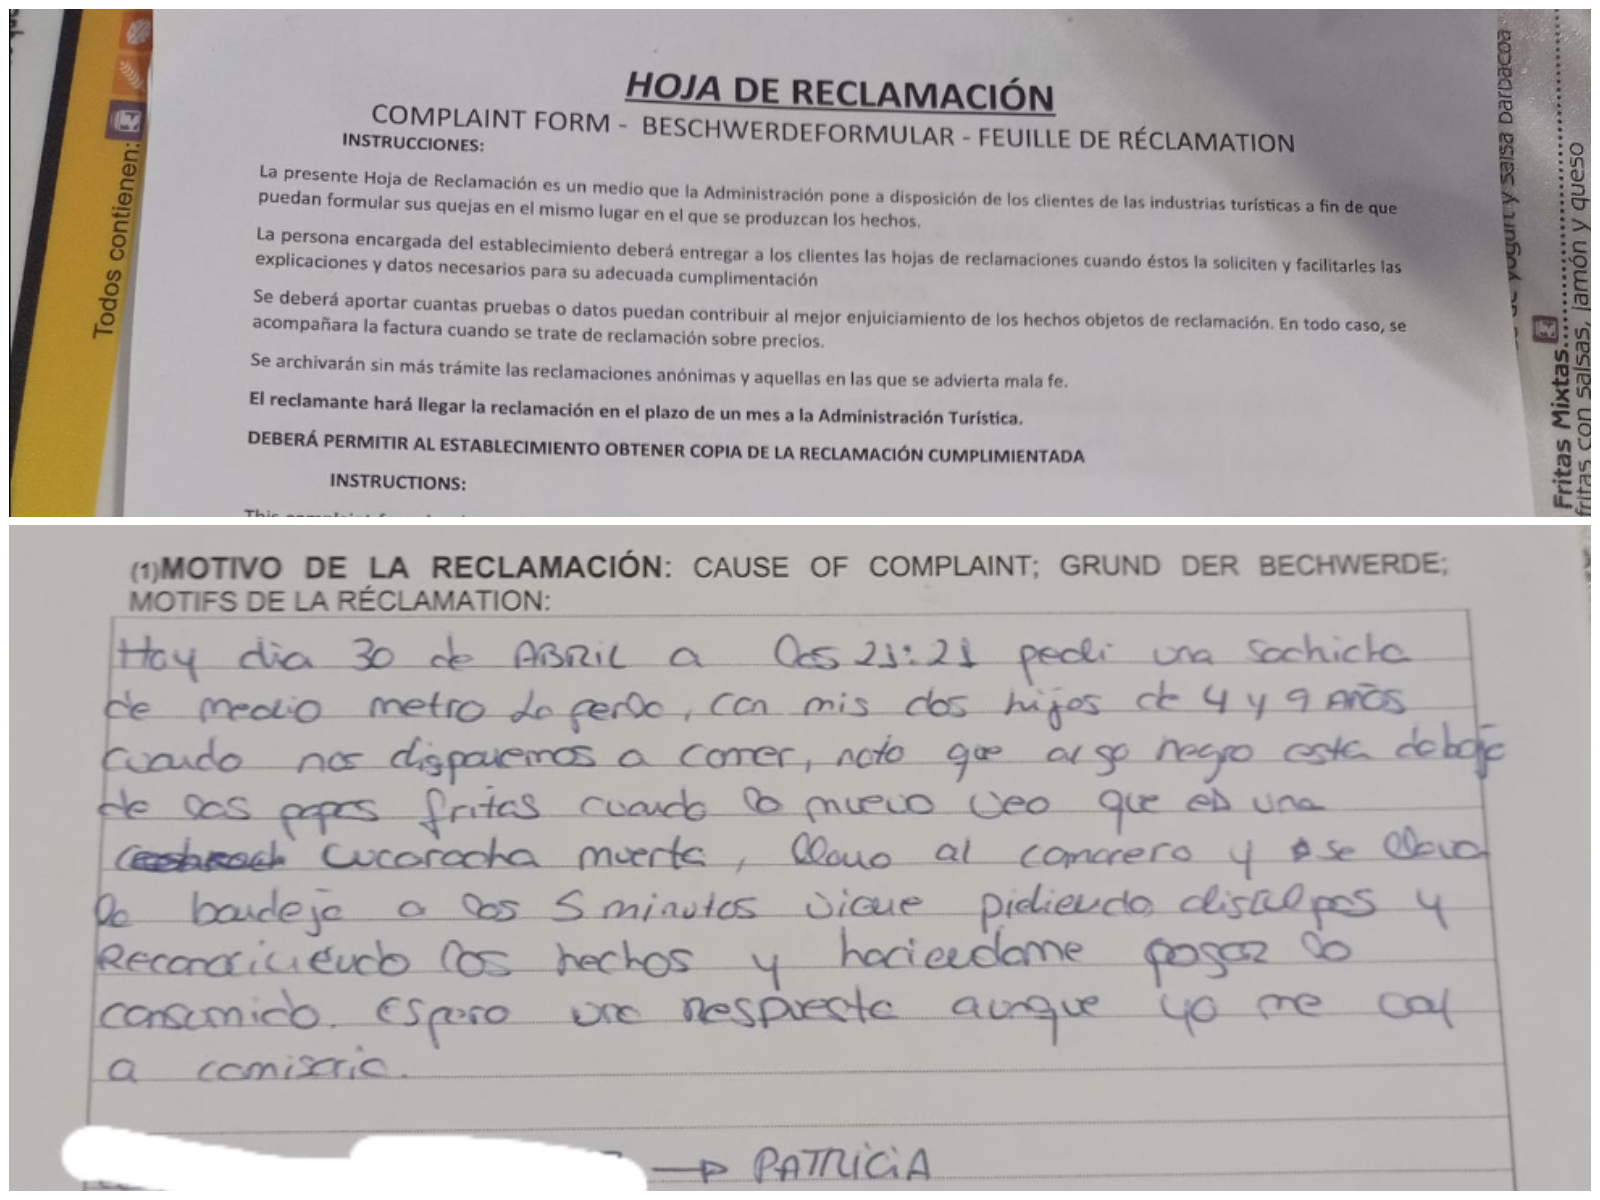 Todos contienen:
HOJA DE RECLAMACIÓN
COMPLAINT FORM - BESCHWERDEFORMULAR - FEUILLE DE RÉCLAMATION
INSTRUCCIONES:
La presente Hoja de Reclamación es un medio que la Administración pone a disposición de los clientes de las industrias turísticas a fin de que
puedan formular sus quejas en el mismo lugar en el que se produzcan los hechos.
La persona encargada del establecimiento deberá entregar a los clientes las hojas de reclamaciones cuando éstos la soliciten y facilitarles las
explicaciones y datos necesarios para su adecuada cumplimentación
Se deberá aportar cuantas pruebas o datos puedan contribuir al mejor enjuiciamiento de los hechos objetos de reclamación. En todo caso, se
acompañara la factura cuando se trate de reclamación sobre precios.
Se archivarán sin más trámite las reclamaciones anónimas y aquellas en las que se advierta mala fe.
El reclamante hará llegar la reclamación en el plazo de un mes a la Administración Turística.
DEBERÁ PERMITIR AL ESTABLECIMIENTO OBTENER COPIA DE LA RECLAMACIÓN CUMPLIMIENTADA
INSTRUCTIONS:
This
yogurt y salsa barbacoa
Fritas Mixtas
fritas con salsas, jamón y queso
(1)MOTIVO DE LA RECLAMACIÓN: CAUSE OF COMPLAINT; GRUND DER BECHWERDE;
MOTIFS DE LA RÉCLAMATION:
Hoy dia 30 de ABRIL a las 21:21 pedi una Sachicha
de medio metro con mis dos hijos de 4 y 9 AÑOS
cuando nos disponemos a comer, noto que algo negro esta debajo
de las papas fritas cuando lo muevo veo que es una
cucaracha muerta, llamo al camarero y se lleva
la bandeja a los 5 minutos viene pidiendo disculpas y
Reconociciendo los hechos y haciendome pagar lo
consumido. Espero una respuesta aunque yo me voy
a comisaria.
→ PATRICIA